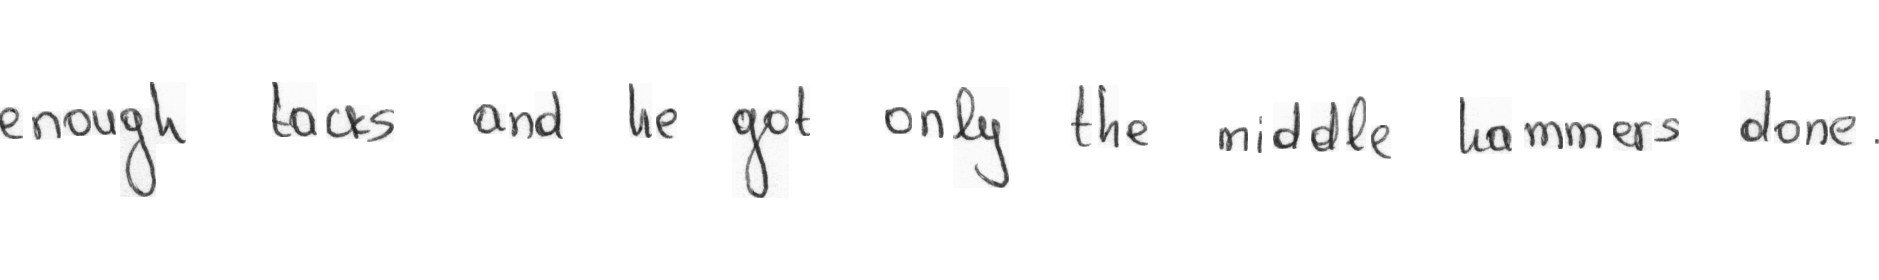 enough tacks and he got only the middle hammers done.